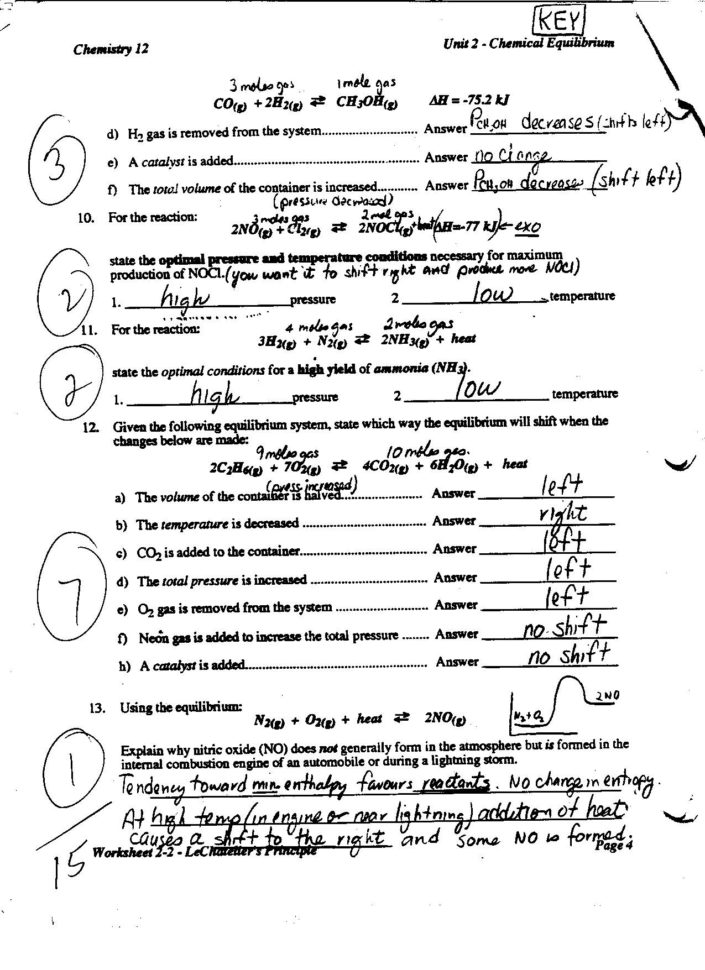 KEY
Chemistry 12 Unit 2 - Chemical Equilibrium
3 moles gas 1 mole gas
CO(g) + 2H2(g) ⇄ CH3OH(g) ΔH = -75.2 kJ
d) H2 gas is removed from the system.................................. Answer PCH3OH decreases (shifts left)
e) A catalyst is added.................................................................. Answer no change
f) The total volume of the container is increased............ Answer PCH3OH decreases (shift left)
3
(pressure decreased)
10. For the reaction: 3 moles gas 2 mol gas
2NO(g) + Cl2(g) ⇄ 2NOCl(g) + heat (ΔH = -77 kJ) ← exo
state the optimal pressure and temperature conditions necessary for maximum
production of NOCl. (you want it to shift right and produce more NOCl)
2
1. high pressure 2 low temperature
11. For the reaction: 4 moles gas 2 moles gas
3H2(g) + N2(g) ⇄ 2NH3(g) + heat
state the optimal conditions for a high yield of ammonia (NH3).
2
1. high pressure 2 low temperature
12. Given the following equilibrium system, state which way the equilibrium will shift when the
changes below are made:
9 moles gas 10 moles gas.
2C2H6(g) + 7O2(g) ⇄ 4CO2(g) + 6H2O(g) + heat
(press increased)
a) The volume of the container is halved...................... Answer left
b) The temperature is decreased .................................. Answer right
c) CO2 is added to the container................................... Answer left
d) The total pressure is increased ................................ Answer left
e) O2 gas is removed from the system ......................... Answer left
7
f) Neon gas is added to increase the total pressure ........ Answer no shift
h) A catalyst is added.................................................................. Answer no shift
13. Using the equilibrium:
N2(g) + O2(g) + heat ⇄ 2NO(g) N2+O2 2NO
Explain why nitric oxide (NO) does not generally form in the atmosphere but is formed in the
internal combustion engine of an automobile or during a lightning storm.
1
Tendency toward min. enthalpy favours reactants. No change in entropy.
At high temp (in engine or near lightning) addition of heat
causes a shift to the right and some NO is formed.
Worksheet 2-2 - LeChatelier's Principle Page 4
15